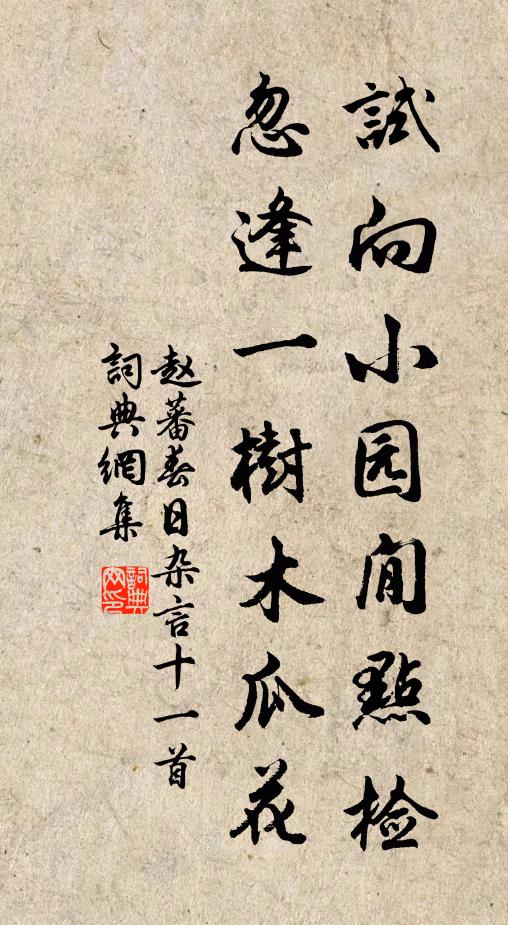 試向小园閒點检
忽逢一樹木瓜花
赵蕃春日杂言十一首
詞典網集
詞典网印